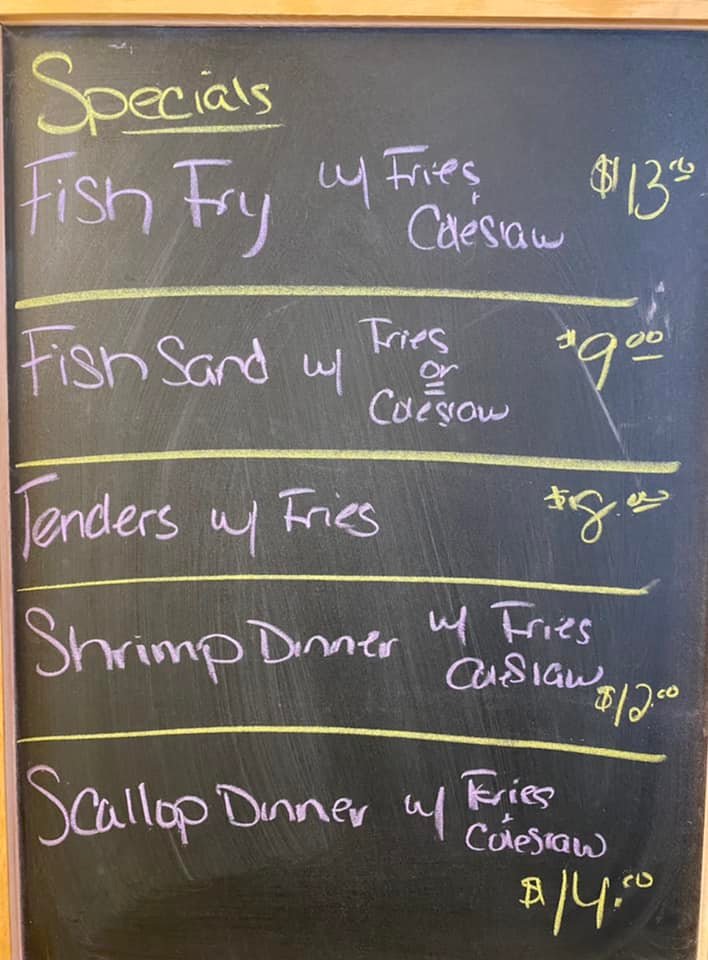 Specials
Fish Fry w/ Fries + Coleslaw $13.00
Fish Sand w/ Fries or Coleslaw $9.00
Tenders w/ Fries $8.00
Shrimp Dinner w/ Fries Coleslaw $12.00
Scallop Dinner w/ Fries + Coleslaw $14.00